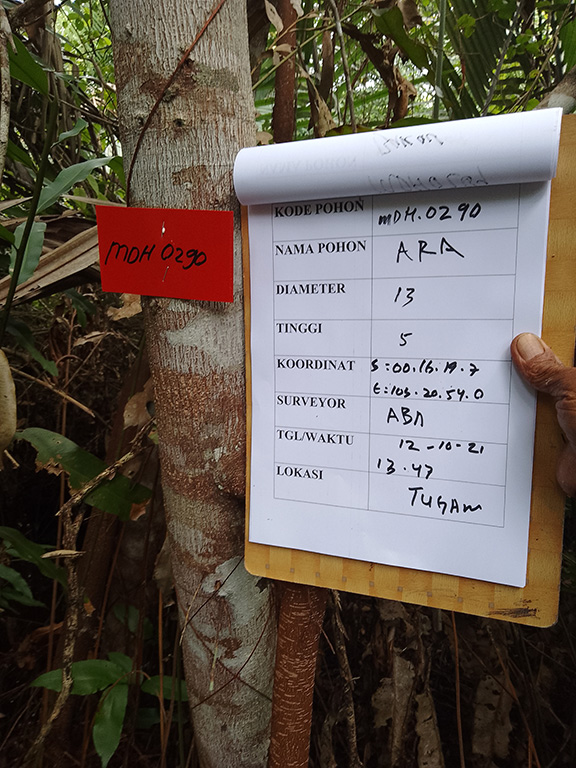 MDH 0290
KODE POHON MDH.0290
NAMA POHON ARA
DIAMETER 13
TINGGI 5
KOORDINAT S:00.16.19.7
E:103.20.54.0
SURVEYOR ABA
TGL/WAKTU 12-10-21
13.47
LOKASI TUGAM